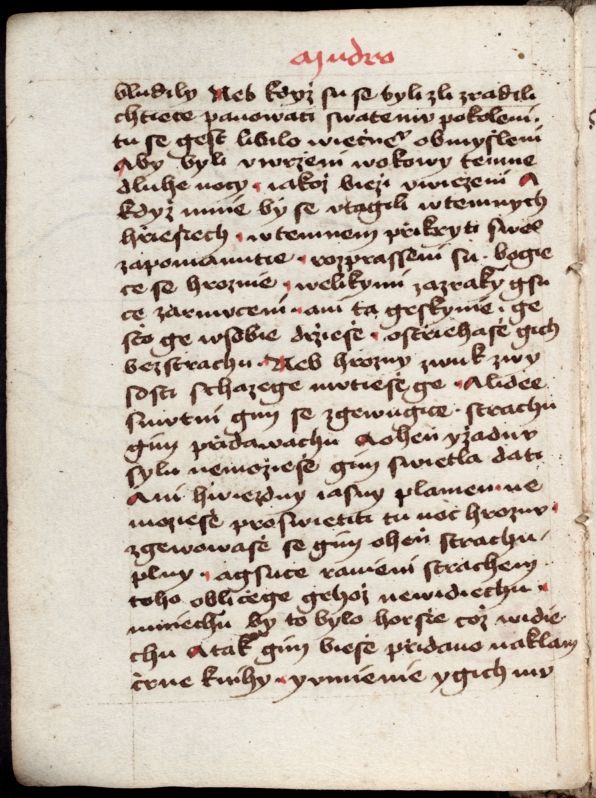 Mudro
bludily Neb když su se byli zli zradili
chtiece panowati swatemu pokoleni
tu se gest libilo wiecne obmyšleni
Aby byli vwrženi wokowy temne
dluhe nocy · iakož bieži vwiezeni A
když mnie by se vtagili wtemnych
hřiesiech · wtemnem přikryti swol
zapomanutie · rozprasseni su · bogie
ce se hroznie · welikymi zazraky gsu
ce zarmuceni · ani ta geskynie · ge
što ge wsobie držieše · ostřiehaše gich
bezstrachu · Neb hrozny zwuk zwy
sosti schazege mutieše ge · A lidee
smutni gim se zgewugice · strachu
gim přidawachu A oheň yžadnu
sylu nemožieše gim swietla dati
Ani hwiezdny iasny plamen · ne
možieše proswietiti tu noc hroznu ·
zgewowaše se gim oheň strachu
plny · agsuce raneni strachem
toho obličege gehož newidiechu ·
mniechu by to bylo horšie což widie
chu A tak gim bieše přidano naklam
črne knihy · y vmienie y gich mu